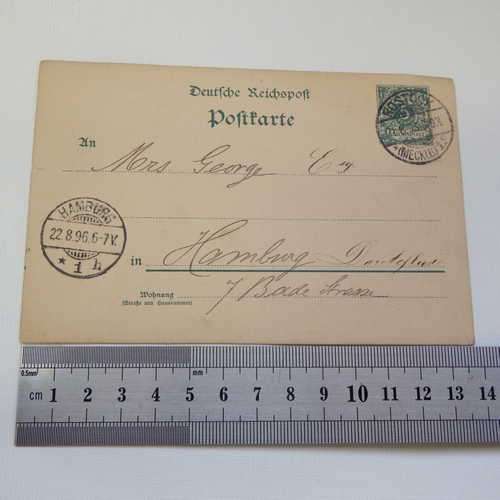 Deutsche Reichspost
Postkarte
An
Mrs. George
HAMBURG
22.8.96.6-7V.
* 1 h
in Hamburg
Wohnung
(Straße und Hausnummer)
7 Bade Strasse
ROSTOCK
(MECKLB)
5
0.5mm
mm
cm 1 2 3 4 5 6 7 8 9 10 11 12 13 14